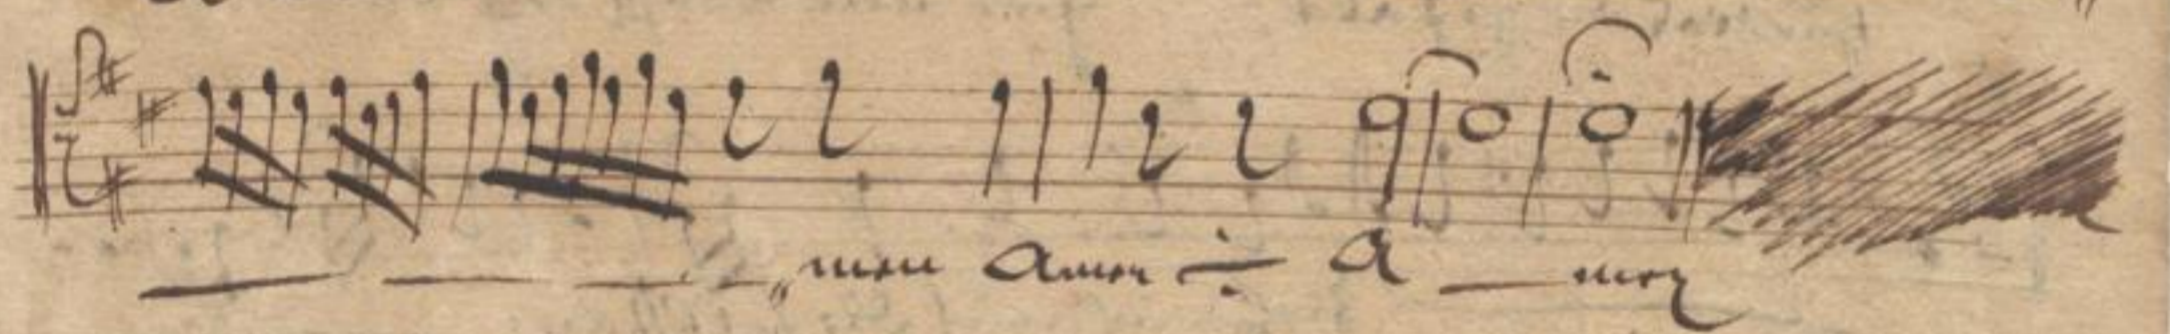 men Amen ÷ A — men